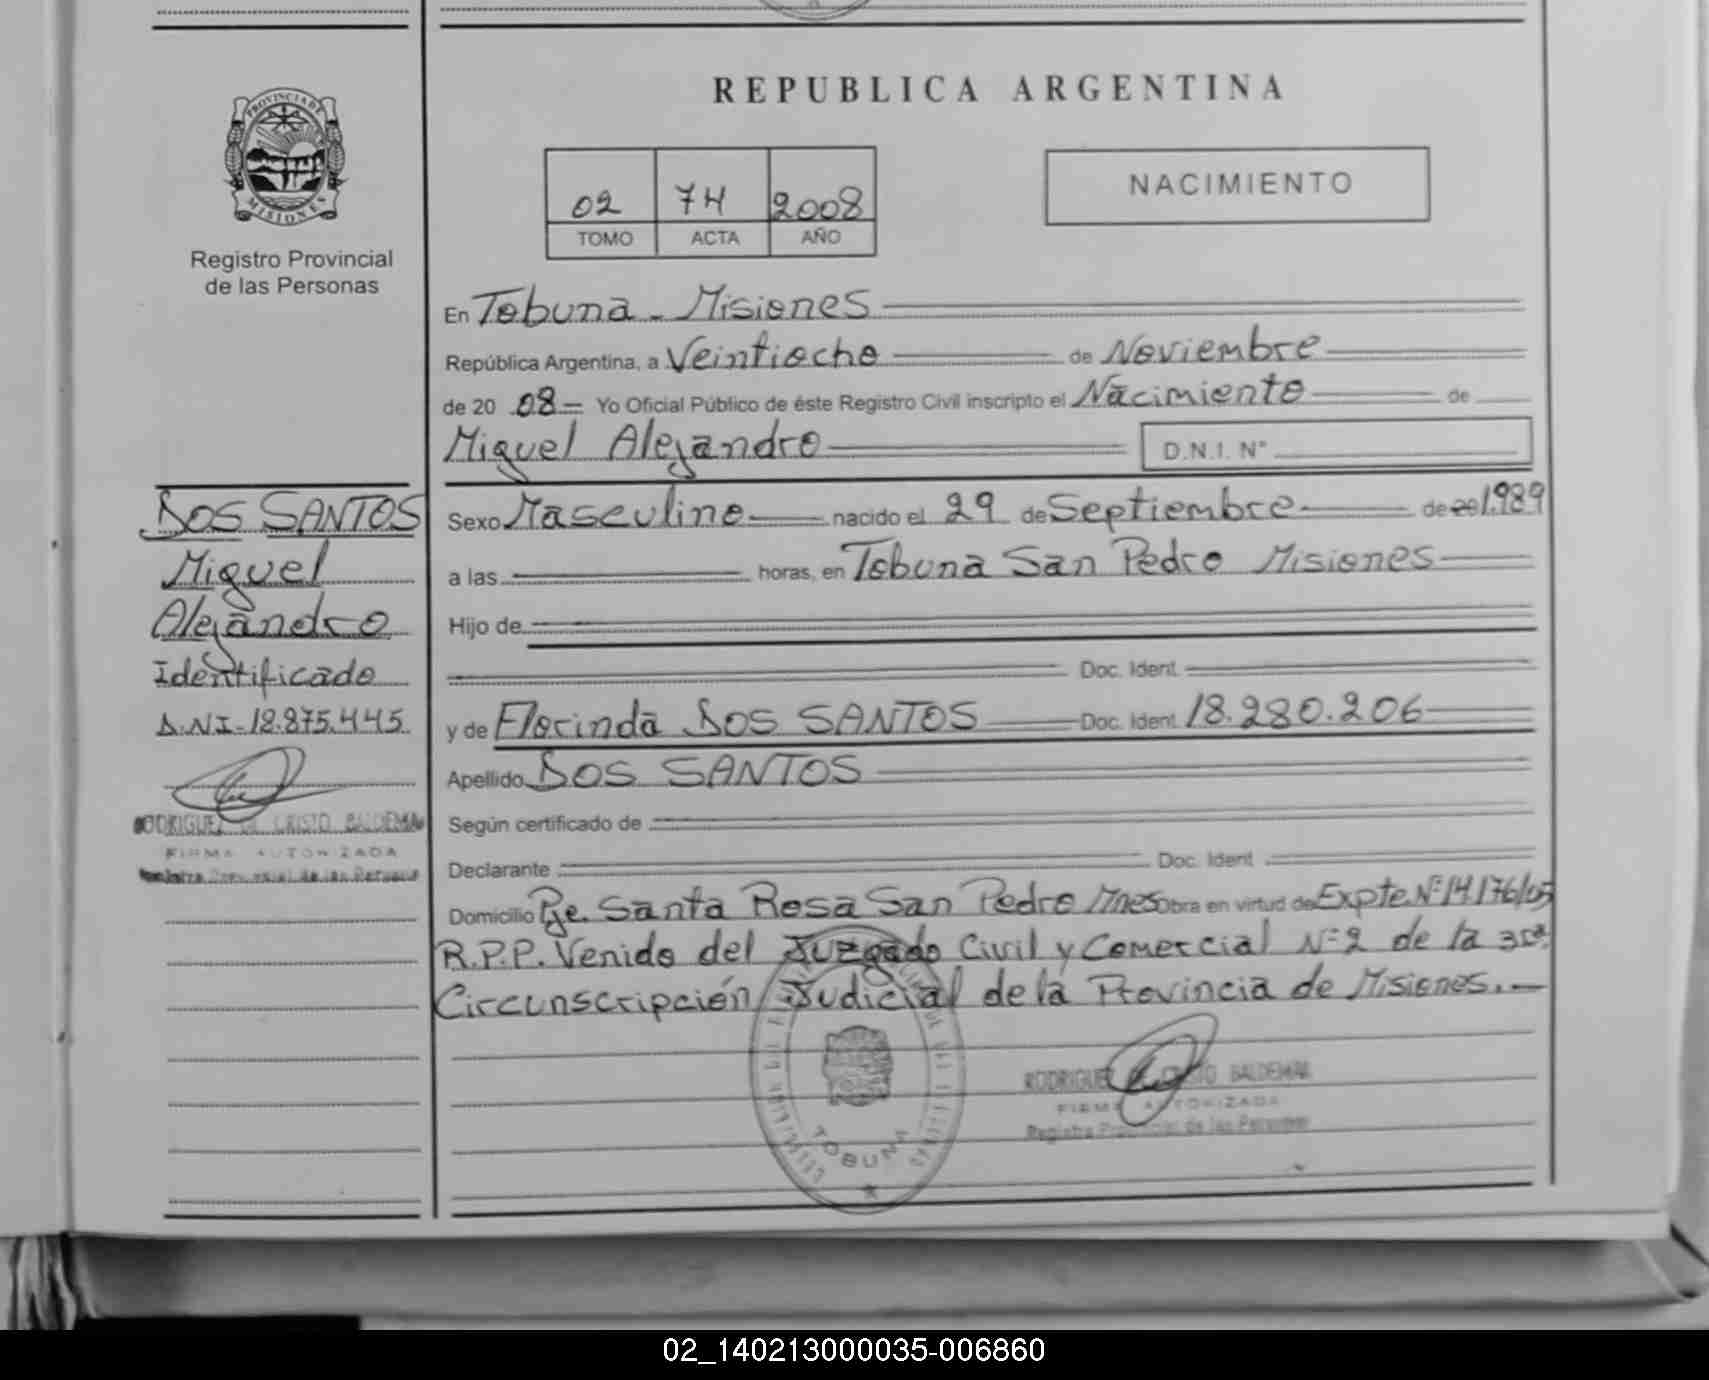 PROVINCIA DE
MISIONES
Registro Provincial
de las Personas
REPUBLICA ARGENTINA
02 74 2008
TOMO ACTA AÑO
NACIMIENTO
En Tobuna - Misiones
República Argentina, a Veintiocho de Noviembre
de 20 08 - Yo Oficial Público de éste Registro Civil inscripto el Nacimiento de
Miguel Alejandro D.N.I. N°
Sexo Masculino nacido el 29 de Septiembre de 20 1.989
a las horas, en Tobuna San Pedro Misiones
Hijo de
Doc. Ident.
y de Florinda DOS SANTOS Doc. Ident. 18.280.206
Apellido DOS SANTOS
Según certificado de
Declarante Doc. Ident.
Domicilio Pje. Santa Rosa San Pedro Mnes Obra en virtud de Expte Nº 14.176/05
R.P.P. Venido del Juzgado Civil y Comercial Nº 2 de la 3ra.
Circunscripción Judicial de la Provincia de Misiones. -
RODRIGUEZ DE CRISTO BALDEMAR
FIRMA AUTORIZADA
Registro Provincial de las Personas
TOBUNA
DOS SANTOS
Miguel
Alejandro
Identificado
D.N.I-18.875.445.
RODRIGUEZ DE CRISTO BALDEMAR
FIRMA AUTORIZADA
Registro Provincial de las Personas
02_140213000035-006860